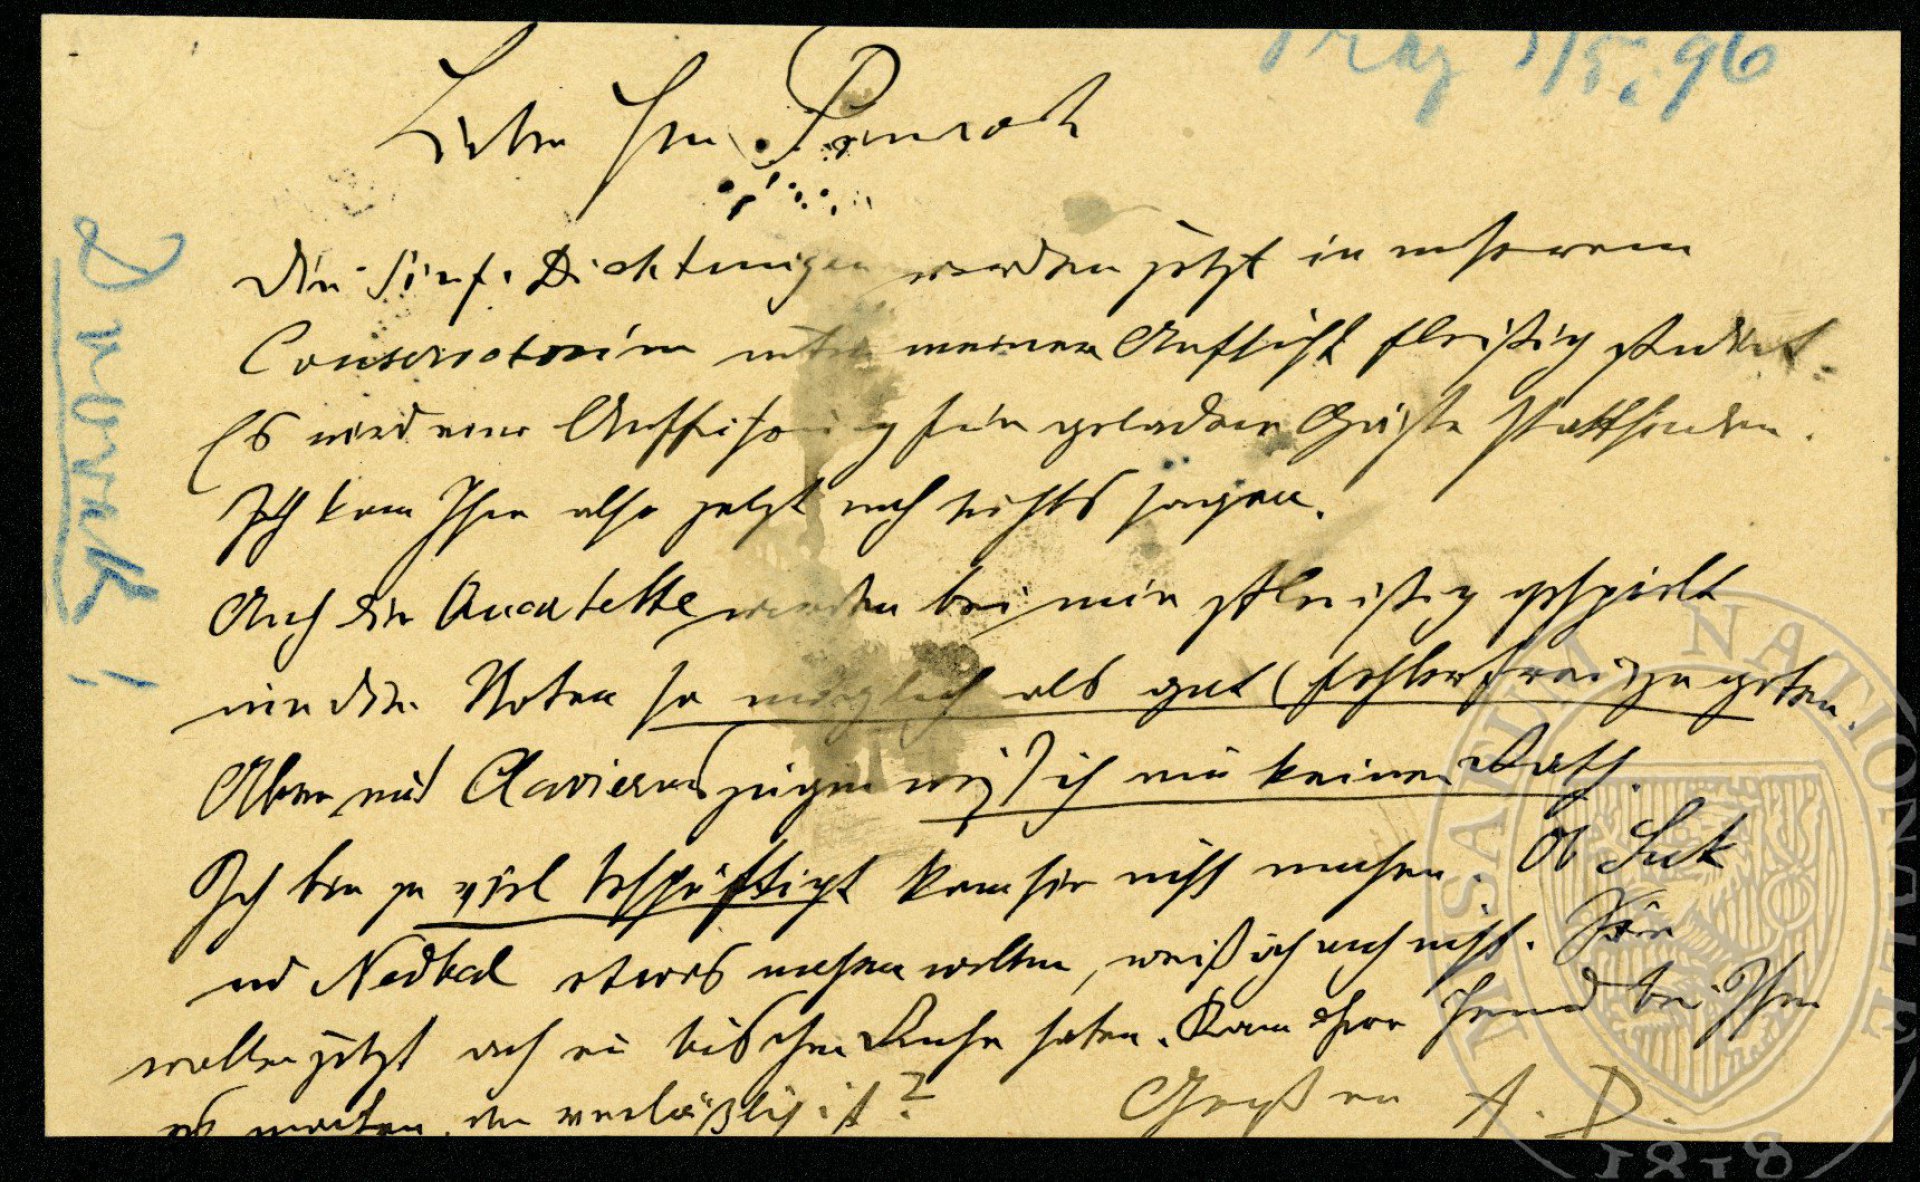 Prag 1/5. 96
Lieber Herr Simrock
Die Sinf. Dichtungen werden jetzt in unserem
Conservatorium unter meiner Aufsicht fleißig studiert.
Es wird eine Aufführung für geladene Gäste stattfinden.
Ich kann Ihnen also jetzt noch nichts sagen.
Auch die Quartette werden bei mir fleißig gespielt
um die Noten so möglich als gut (fehlerfrei) zu geben.
Aber mit Clavierauszügen weiß ich mir keinen Rath.
Ich bin zu viel beschäftigt kann sie nicht machen. Ob Suk
und Nedbal etwas machen wollen, weiß ich auch nicht. Sie
wollen jetzt auch ein bischen Ruhe haben. Kann Jemand bei Ihnen
es machen, der verläßlich ist?
Grüßen A. D.
Dvorak!
MUSAEUM NATIONALE
1818